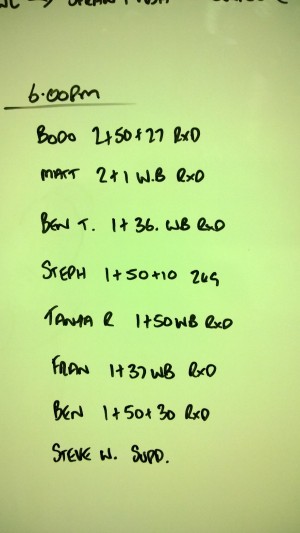 6.00pm
BODO 2+50+27 RxD
MATT 2+1 W.B RxD
BEN T. 1+36. WB RxD
STEPH 1+50+10
TANIA R 1+50 WB RxD
FRAN 1+37 WB RxD
BEN 1+50+30 RxD
STEVE W. SUPD.